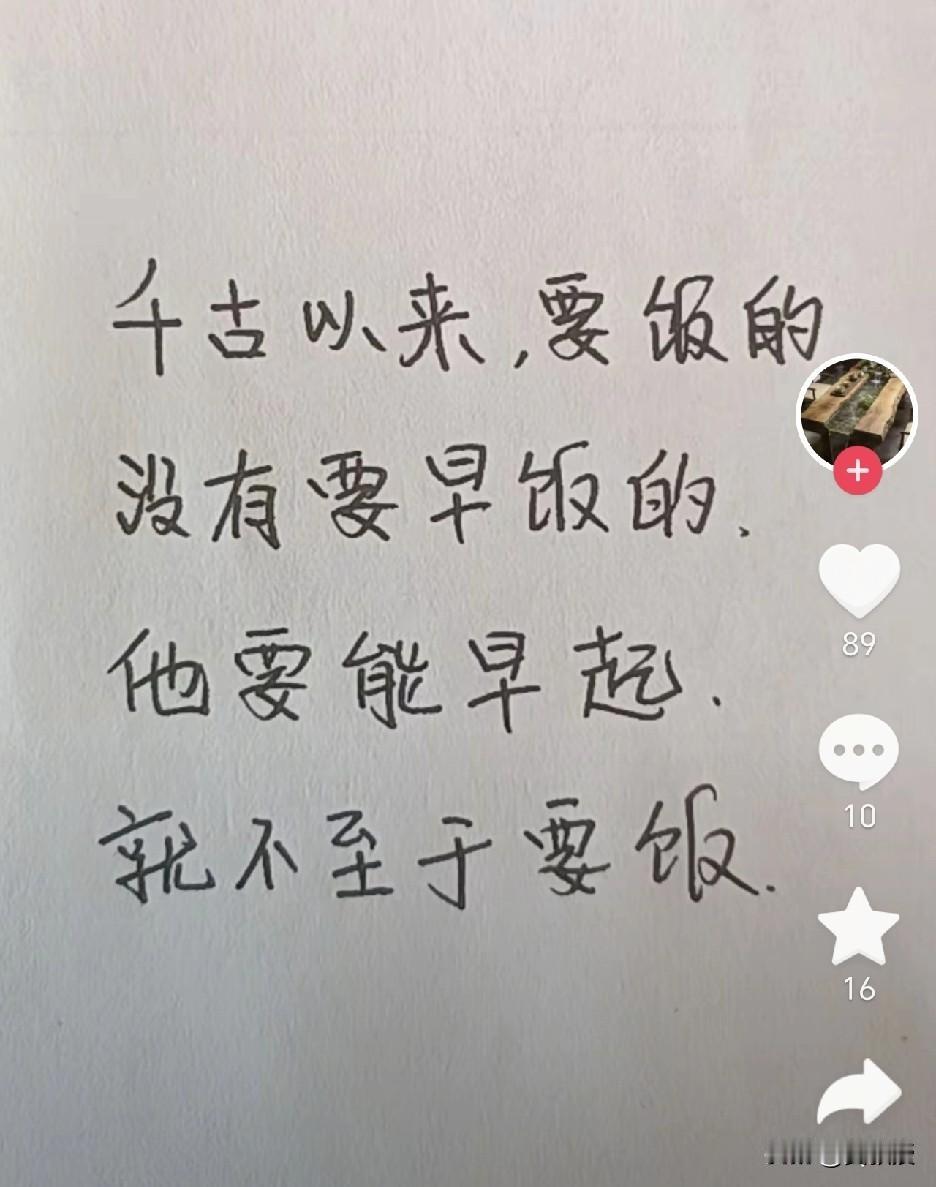 千古以来,要饭的
没有要早饭的.
他要能早起.
就不至于要饭.
89
10
16